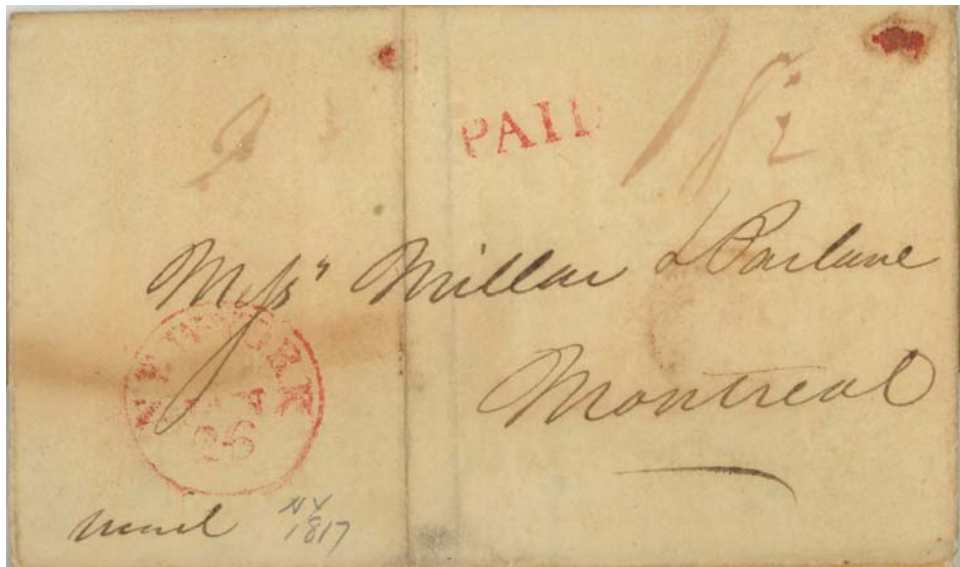 PAID
18½
Messrs Millar & Parlane
Montreal
NEW YORK
26
mail
NY
1817